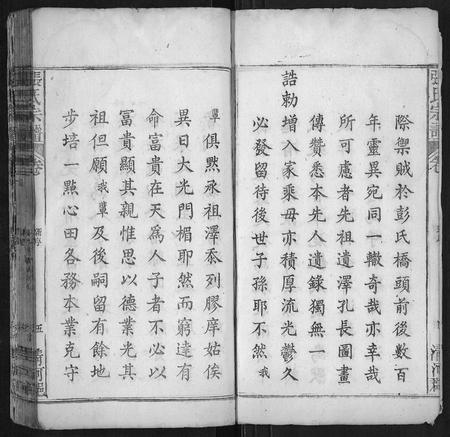 際禦賊於彭氏橋頭前後數百
年靈異宛同一轍奇哉亦幸哉
所可慮者先祖遺澤孔長圖畫
傳贊悉本先人遺錄獨無一
誥勅增入家乘毋亦積厚流光鬱久
必發留待後世子孫耶不然我
輩俱黙承祖澤忝列膠庠姑俟
異日大光門楣耶然而窮達有
命富貴在天為人子者不必以
富貴顯其親惟思以德業光其
祖但願我輩及後嗣留有餘地
步培一點心田各務本業克守
張氏宗譜 卷
清河郡
張氏宗譜 卷
五
清河郡